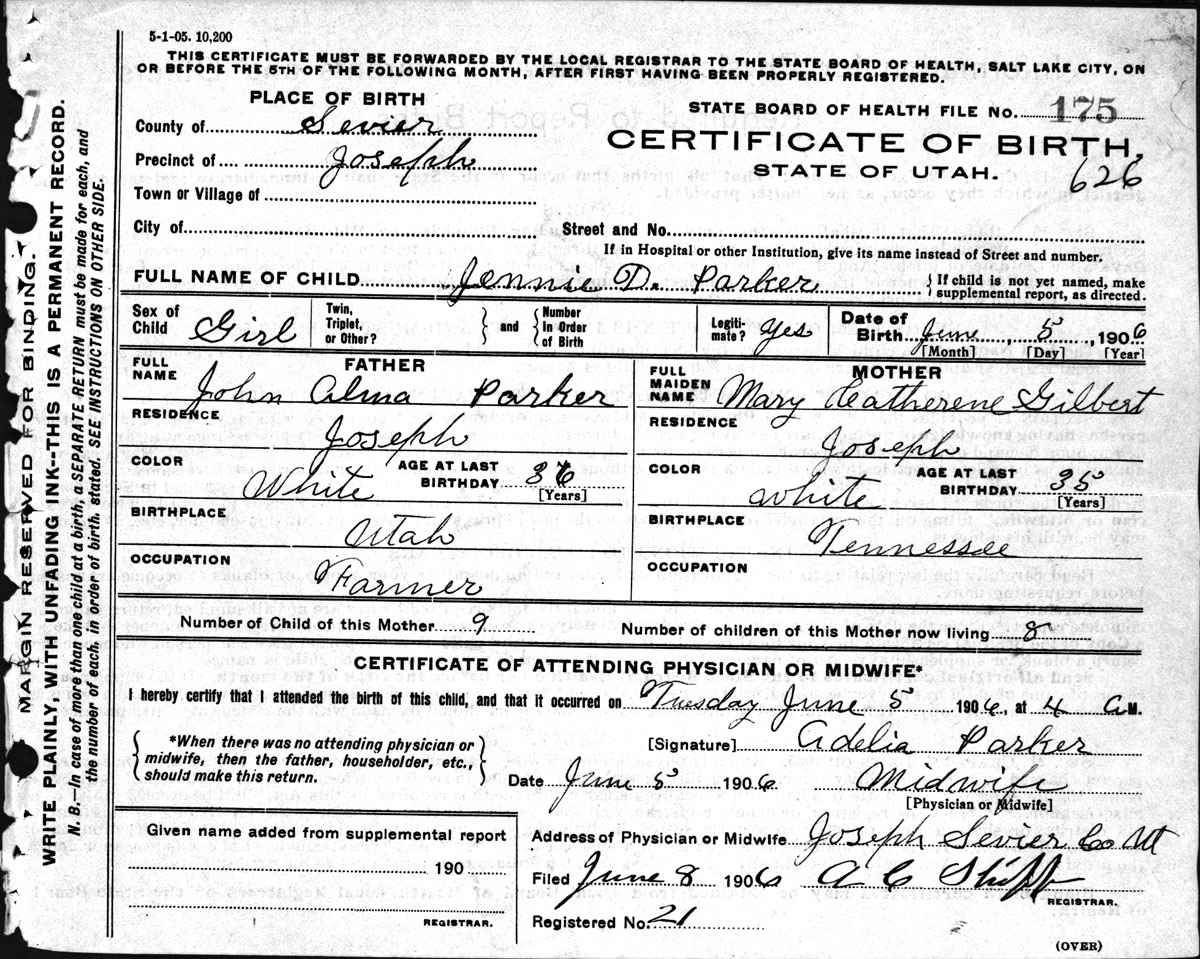 5-1-05. 10,200
THIS CERTIFICATE MUST BE FORWARDED BY THE LOCAL REGISTRAR TO THE STATE BOARD OF HEALTH, SALT LAKE CITY, ON
OR BEFORE THE 5TH OF THE FOLLOWING MONTH, AFTER FIRST HAVING BEEN PROPERLY REGISTERED.
PLACE OF BIRTH
STATE BOARD OF HEALTH FILE No. 175
County of Sevier
CERTIFICATE OF BIRTH,
Precinct of Joseph
STATE OF UTAH. 626
Town or Village of
City of Street and No.
If in Hospital or other Institution, give its name instead of Street and number.
FULL NAME OF CHILD Jennie D. Parker {If child is not yet named, make
supplemental report, as directed.
Sex of Child Girl Twin, Triplet, or Other? } and { Number In Order of Birth Legiti-mate? Yes Date of Birth June, 5, 1906
[Month] [Day] [Year]
FATHER MOTHER
FULL NAME John Alma Parker FULL MAIDEN NAME Mary Catherene Gilbert
RESIDENCE RESIDENCE
Joseph Joseph
COLOR White AGE AT LAST BIRTHDAY 36 [Years] COLOR White AGE AT LAST BIRTHDAY 35 [Years]
BIRTHPLACE Utah BIRTHPLACE Tennessee
OCCUPATION Farmer OCCUPATION
Number of Child of this Mother 9 Number of children of this Mother now living 8
CERTIFICATE OF ATTENDING PHYSICIAN OR MIDWIFE*
I hereby certify that I attended the birth of this child, and that it occurred on Tuesday June 5 1906, at 4 A M.
{*When there was no attending physician or
midwife, then the father, householder, etc.,
should make this return.}
[Signature] Adelia Parker
Date June 5 1906 Midwife
[Physician or Midwife]
Given name added from supplemental report
190
REGISTRAR.
Address of Physician or Midwife Joseph Sevier Co Ut
Filed June 8 1906 A C Shipp
REGISTRAR.
Registered No. 21
(OVER)
MARGIN RESERVED FOR BINDING.
WRITE PLAINLY, WITH UNFADING INK--THIS IS A PERMANENT RECORD.
N. B.—In case of more than one child at a birth, a SEPARATE RETURN must be made for each, and
the number of each, in order of birth, stated. SEE INSTRUCTIONS ON OTHER SIDE.